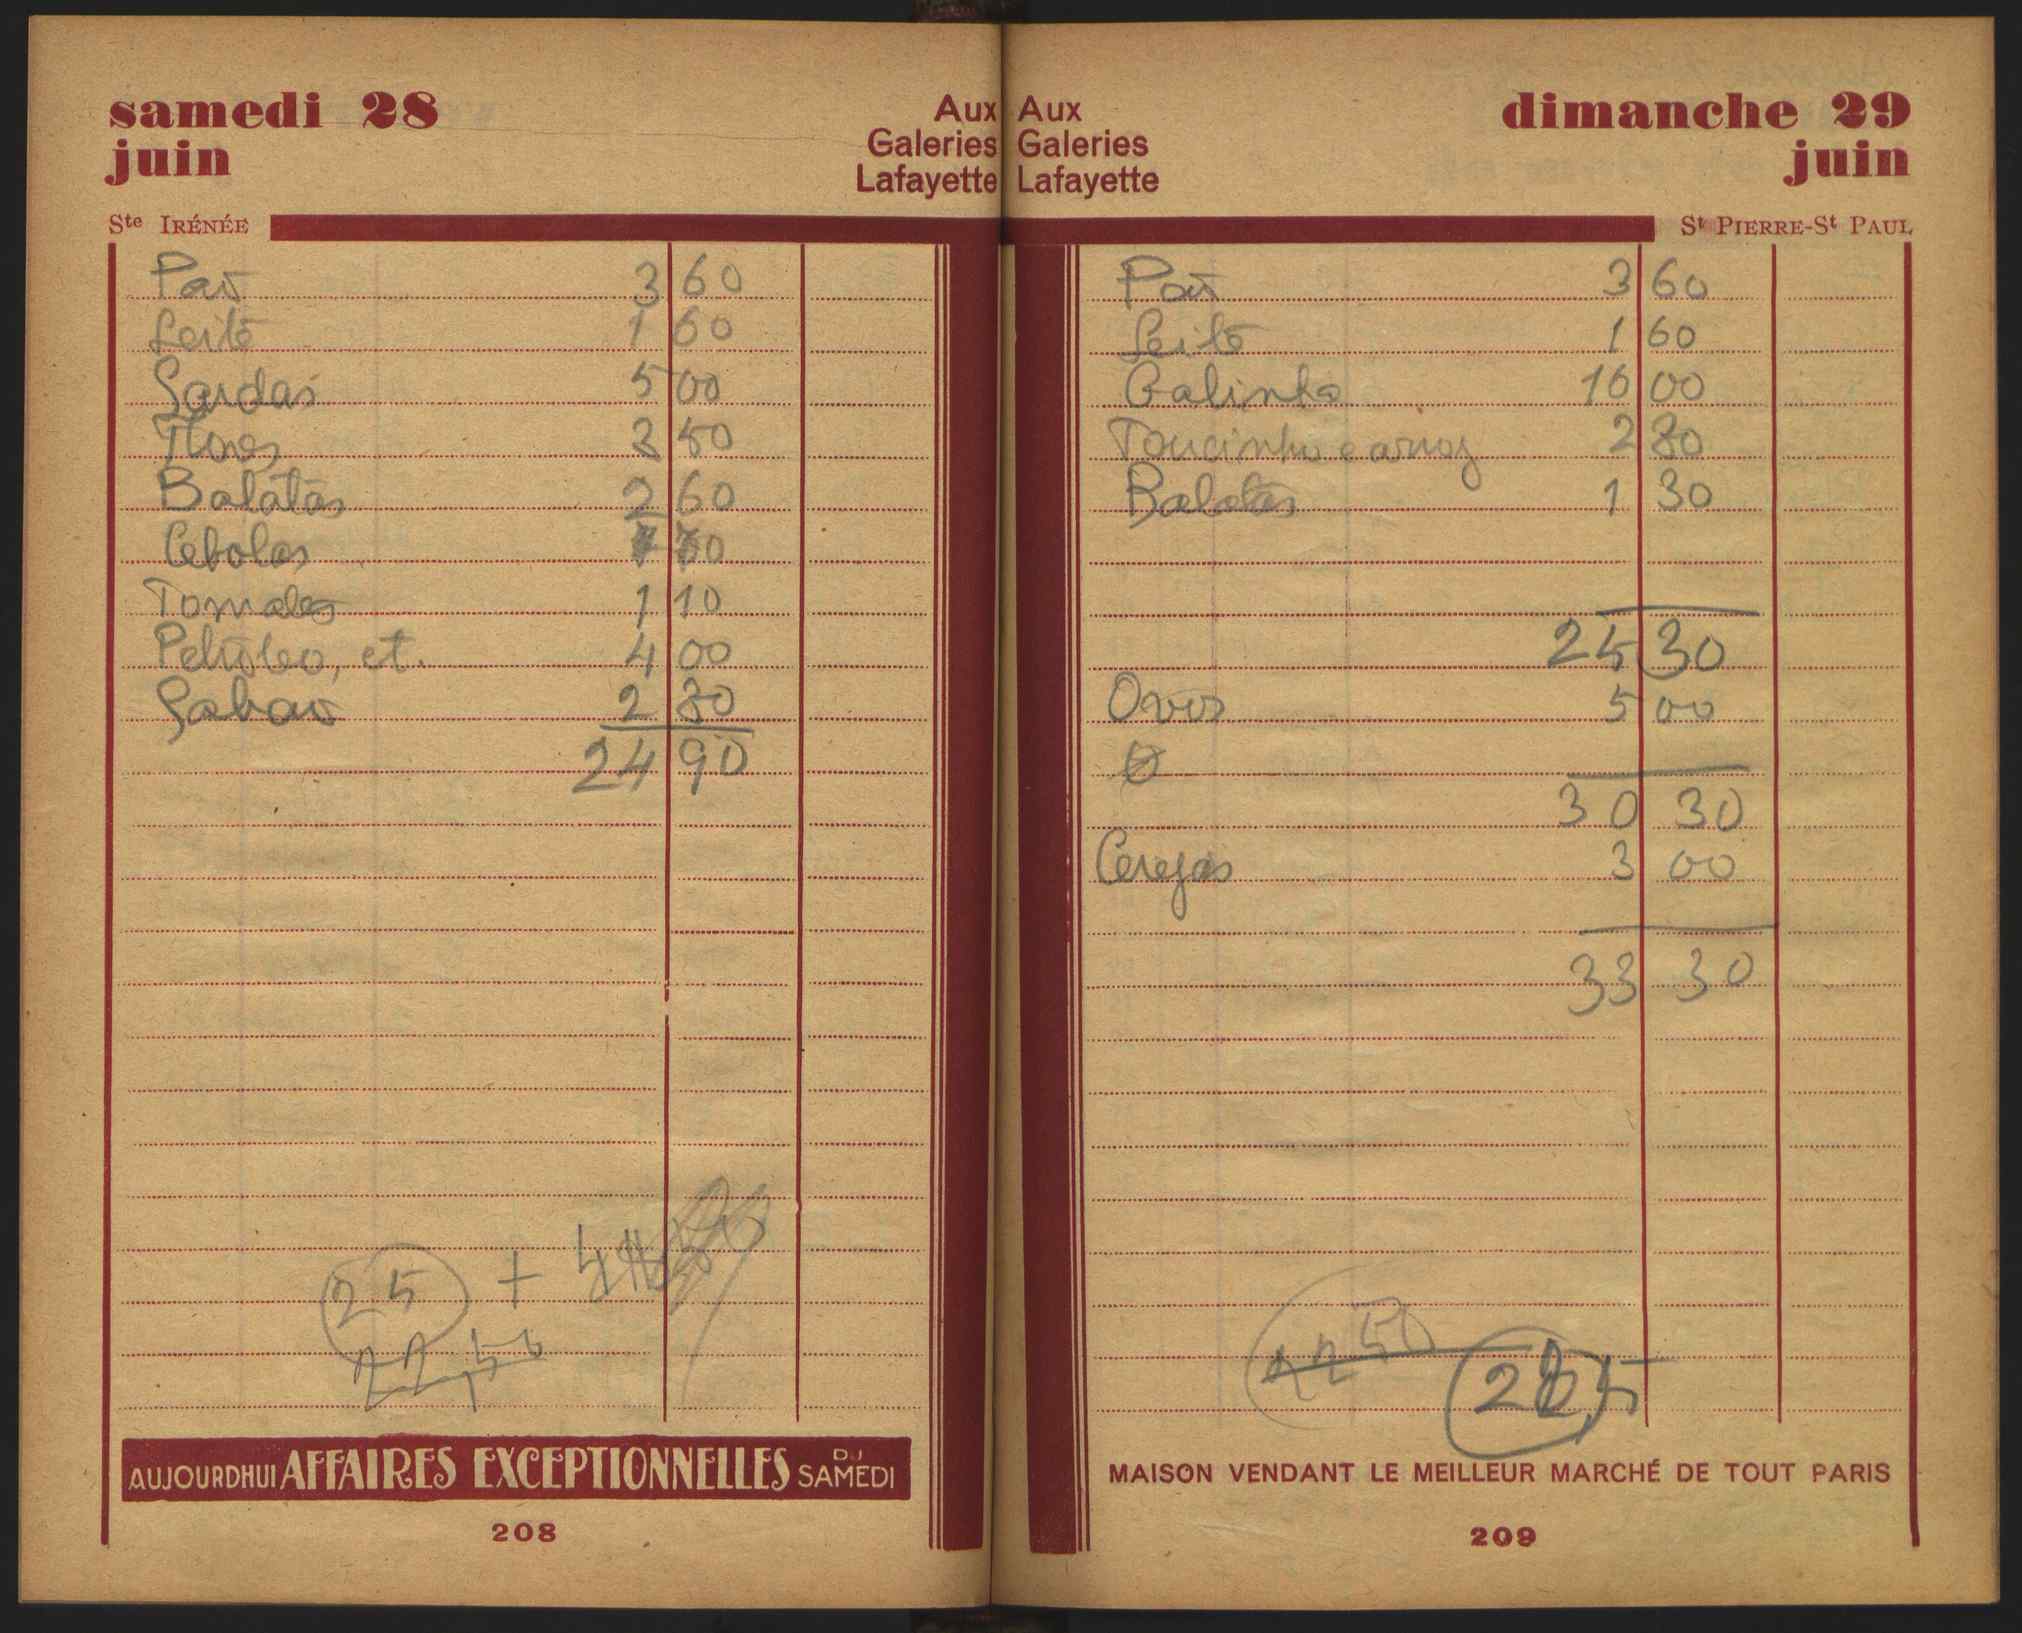 samedi 28
juin
Aux
Galeries
Lafayette
Ste IRÉNÉE
Pão 3 60
Leite 1 60
Sardas 5 00
Flores 3 50
Batatas 2 60
Cebolas 70
Tomates 1 10
Petroleo, et. 4 00
Sabão 2 80
24 90
25 +
22,50
AUJOURDHUI AFFAIRES EXCEPTIONNELLES DU SAMEDI
208
Aux
Galeries
Lafayette
dimanche 29
juin
St PIERRE-St PAUL
Pão 3 60
Leite 1 60
Galinha 16 00
Toucinho e arroz 2 80
Batatas 1 30
25 30
Ovos 5 00
30 30
Cerejas 3 00
33 30
22 50
MAISON VENDANT LE MEILLEUR MARCHÉ DE TOUT PARIS
209